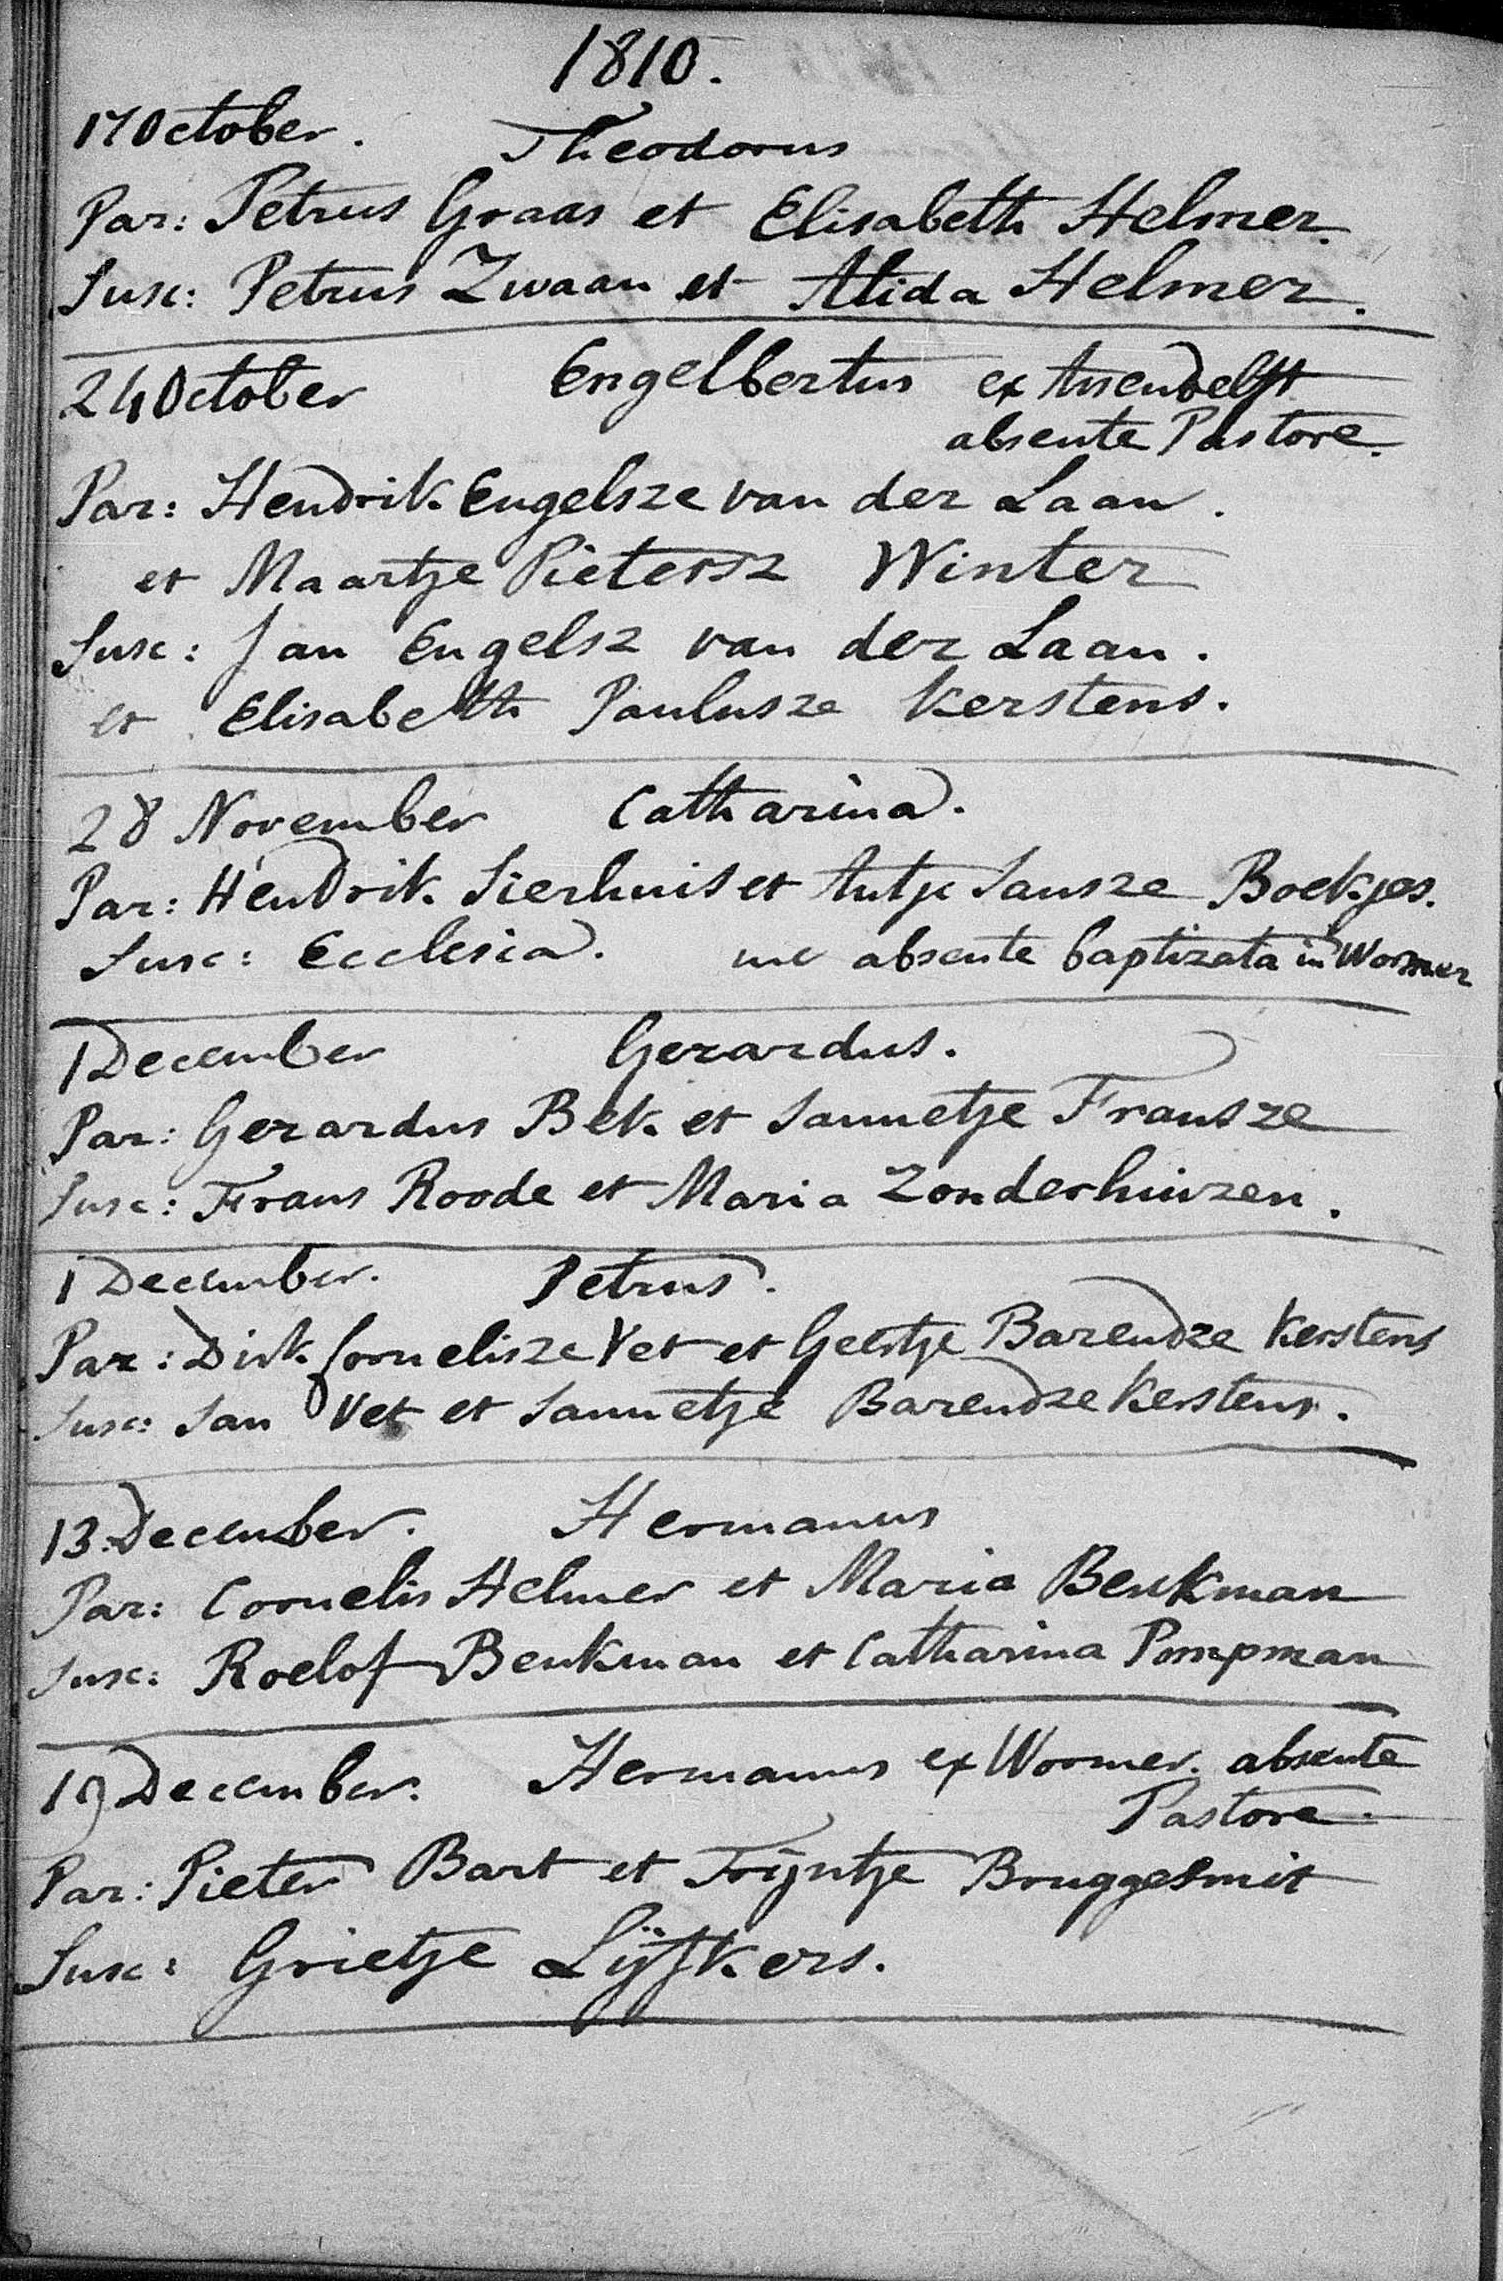 1810.
17 October. Theodorus
Par: Petrus Graas et Elisabeth Helmer.
Susc: Petrus Zwaan et Alida Helmer.
24 October Engelbertus ex Assendelft
absente Pastore.
Par: Hendrik Engelsze van der Laan.
et Maartje Pietersz Winter
Susc: Jan Engelsz van der Laan.
et Elisabeth Paulusze Kerstens.
28 November Catharina.
Par: Hendrik Sierhuis et Antje Jansze Boekjes.
Susc: Ecclesia. me absente baptizata in Wormer
1 December Gerardus.
Par: Gerardus Bek et Jannetje Fransze
Susc: Frans Roode et Maria Zonderhuizen.
1 December. Petrus.
Par: Dirk Cornelisze Vet et Geertje Barendze Kerstens
Susc: Jan Vet et Jannetje Barendze Kerstens.
13 December. Hermanus
Par: Cornelis Helmer et Maria Beukman
Susc: Roelof Beukman et Catharina Pompman
19 December. Hermanus ex Wormer. absente
Pastore.
Par: Pieter Bart et Trijntje Bruggesmit
Susc: Grietje Lijfkers.